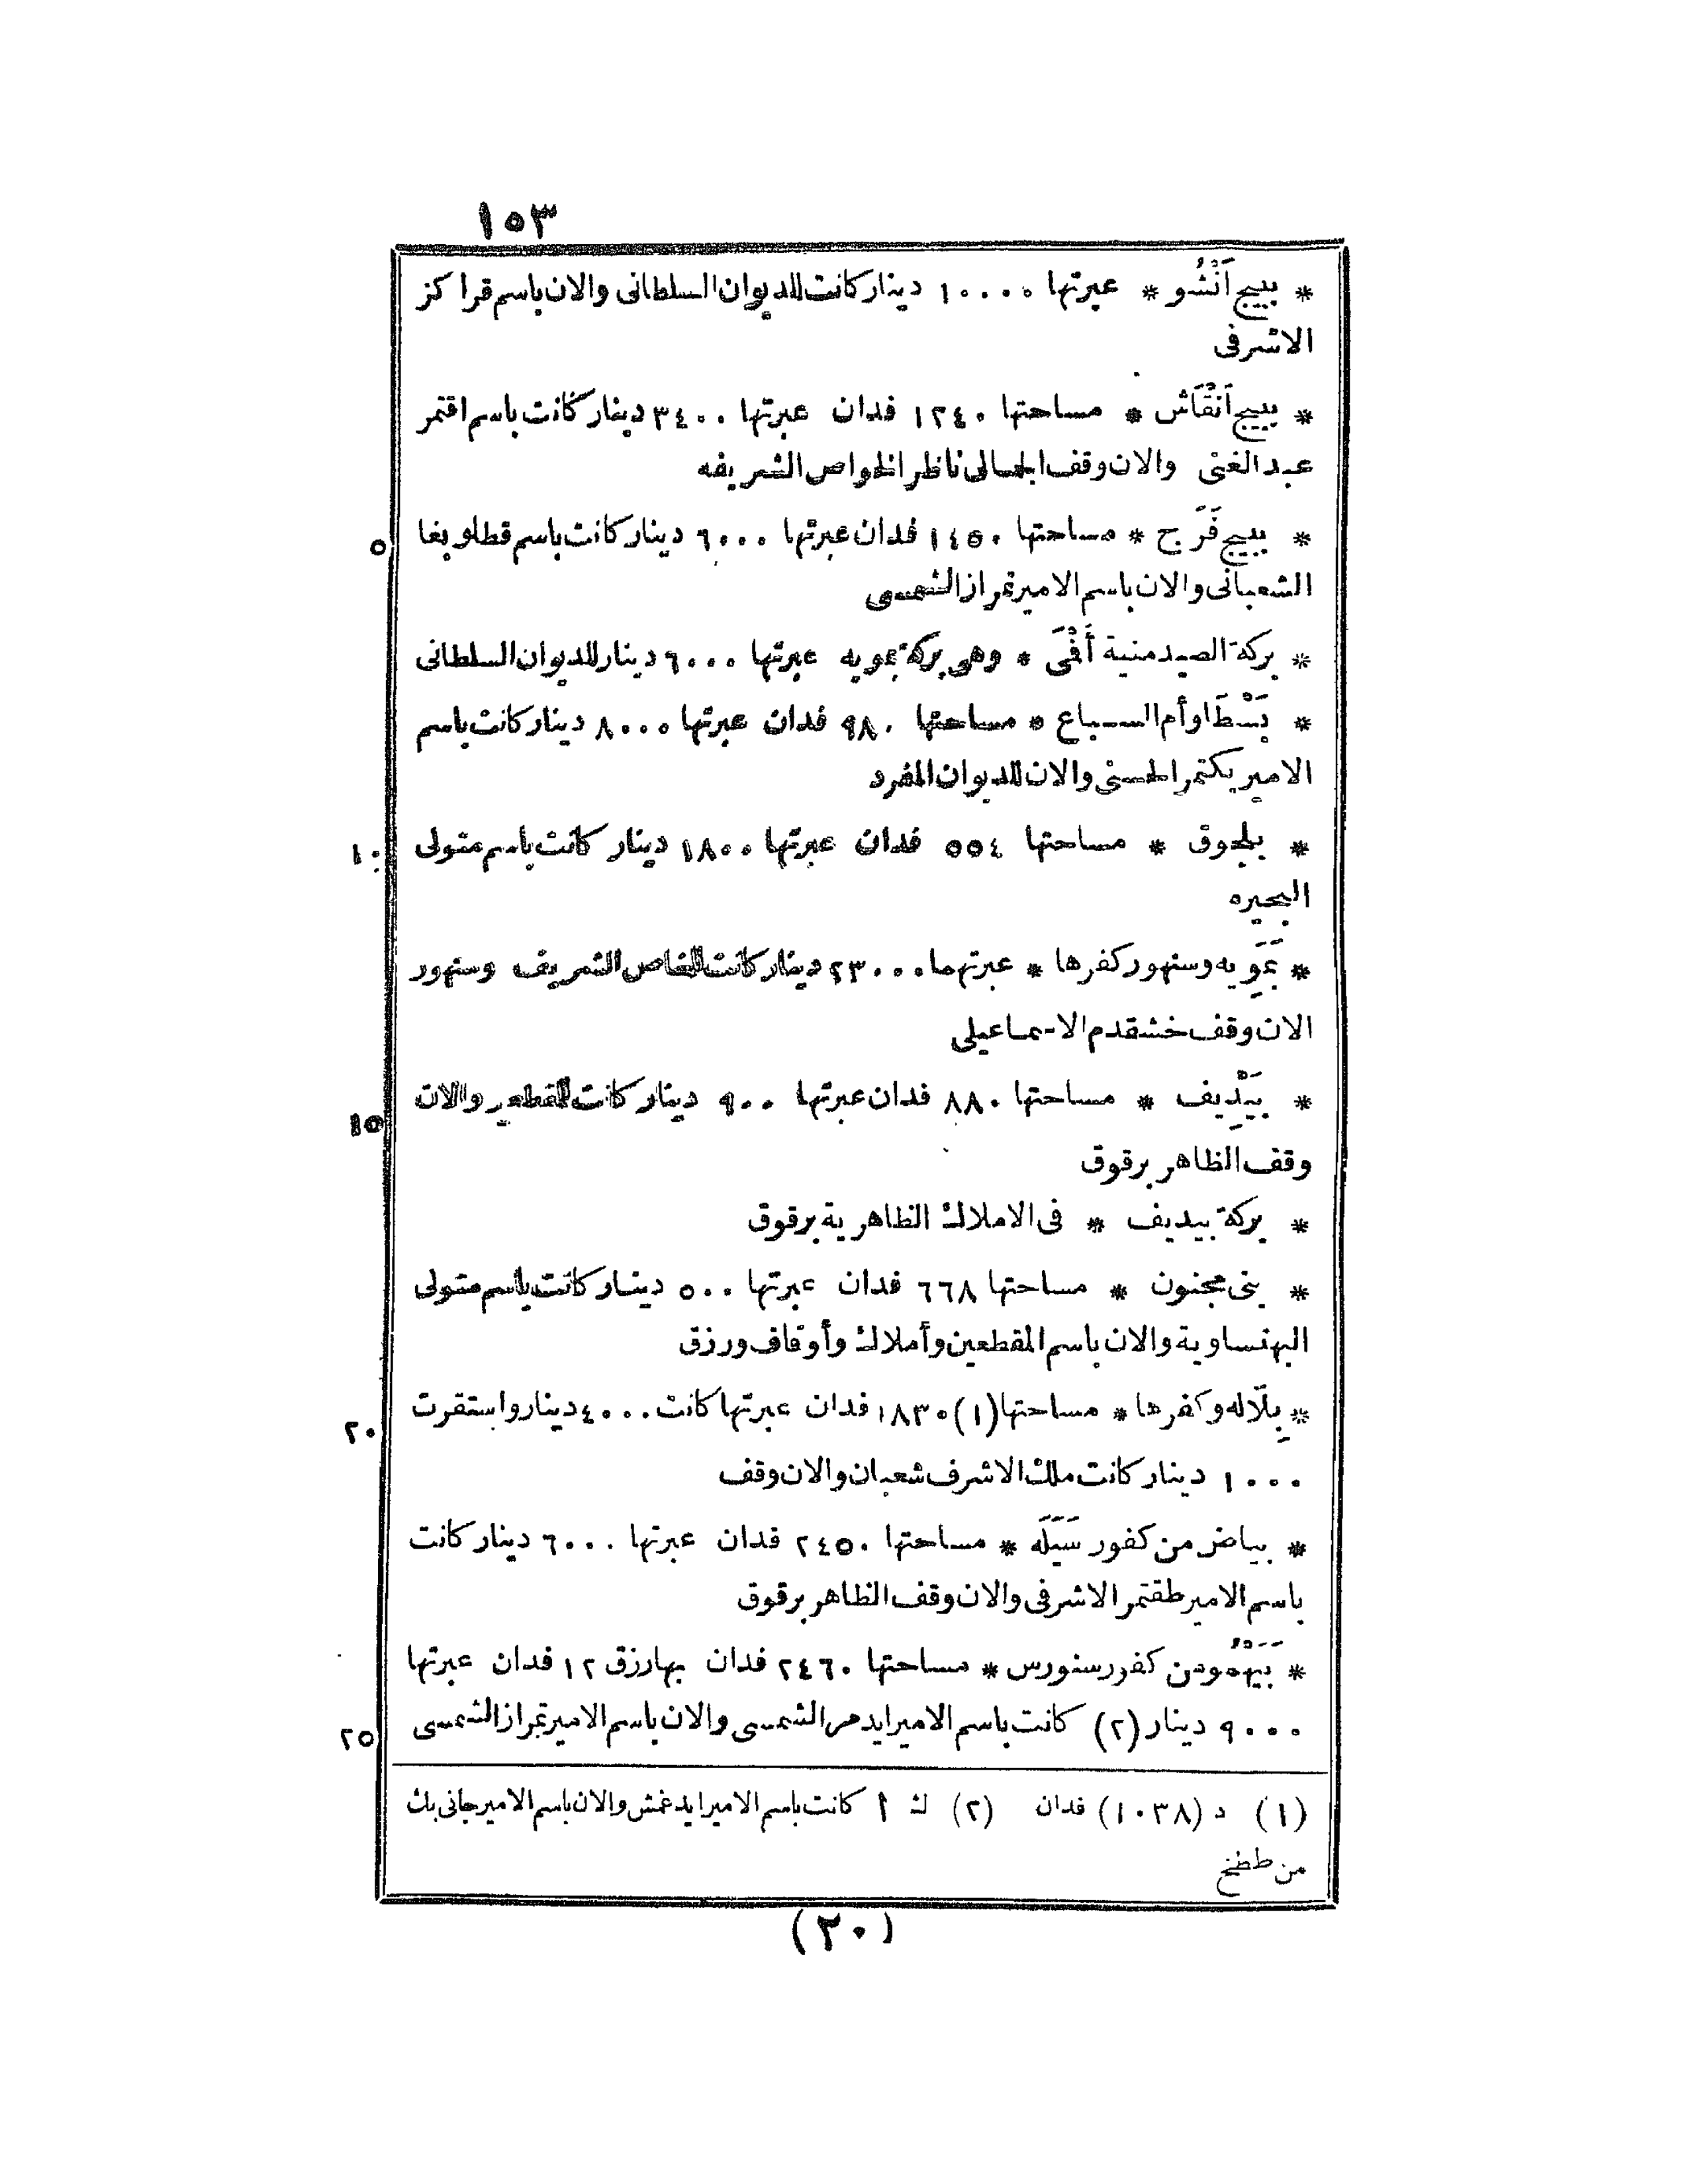 ١٥٣
* ببيج اَنْشُو * عبرتها ١٠٠٠٠ دينار كانت للديوان السلطانى والان باسم قراكز
الاشرفى
* ببيج اَنْقَاش * مساحتها ١٢٤٠ فدان عبرتها ٣٤٠٠ دينار كانت باسم اقتمر
عبد الغنى والان وقف الجمالى ناظر الخواص الشريفه
* ببيج فَرَج * مساحتها ١٤٥٠ فدان عبرتها ٦٠٠٠ دينار كانت باسم قطلوبغا
٥
الشعبانى والان باسم الامير تمراز الشمسى
* بركة الصيد منية أَفْنَى * وهى بركة بمويه عبرتها ٦٠٠٠ دينار للديوان السلطانى
* بَسْطَا وأم السباع * مساحتها ٩٨٠ فدان عبرتها ٨٠٠٠ دينار كانت باسم
الامير بكتمر الحسنى والان للديوان المفرد
* بلجوق * مساحتها ٥٥٤ فدان عبرتها ١٨٠٠ دينار كانت باسم متولى
١٠
البحيره
* بَمَوِيه وسنهور كفرها * عبرتهما ٢٣٠٠٠ دينار كانت للخاص الشريف وسنهور
الان وقف خشقدم الاسماعيلى
* بَيْدِيف * مساحتها ٨٨٠ فدان عبرتها ٩٠٠ دينار كانت للمقطعين والان
١٥
وقف الظاهر برقوق
* بركة بيديف * فى الاملاك الظاهرية برقوق
* بنى مجنون * مساحتها ٦٦٨ فدان عبرتها ٥٠٠ دينار كانت باسم متولى
البهنساوية والان باسم المقطعين وأملاك وأوقاف ورزق
* بِلّاله وكفرها * مساحتها (١) ١٨٣٠ فدان عبرتها كانت ٤٠٠٠ دينار واستقرت
٢٠
١٠٠٠ دينار كانت ملك الاشرف شعبان والان وقف
* بياض من كفور سَيَلَه * مساحتها ٢٤٥٠ فدان عبرتها ٦٠٠٠ دينار كانت
باسم الامير طقتمر الاشرفى والان وقف الظاهر برقوق
* بَيَهْمُو من كفور سنورس * مساحتها ٢٤٦٠ فدان بها رزق ١٢ فدان عبرتها
٩٠٠٠ دينار (٢) كانت باسم الامير ايدمر الشمسى والان باسم الامير تمراز الشمسى
٢٥
(١) د (١٠٣٨) فدان (٢) ك أ كانت باسم الامير ايدغمش والان باسم الامير جانى بك
من ططخ
(٢٠)